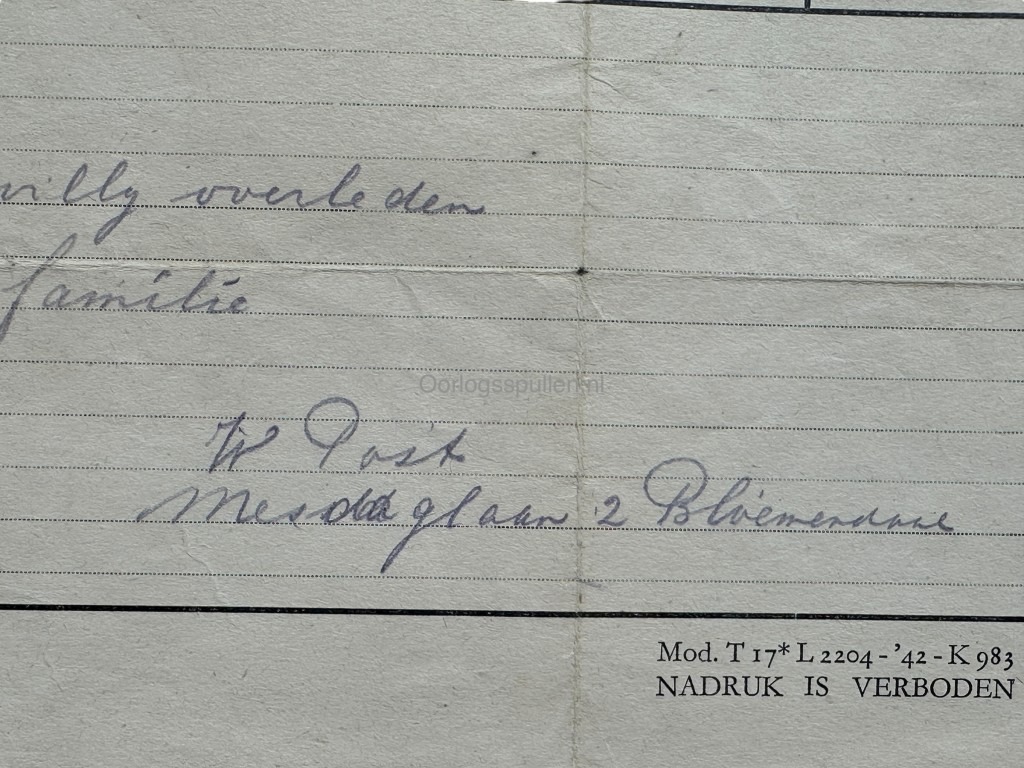 willy overleden
familie
Oorlogsspullen.nl
W Post
Mesdaglaan 2 Bloemendaal
Mod. T 17* L 2204 - '42 - K 983
NADRUK IS VERBODEN